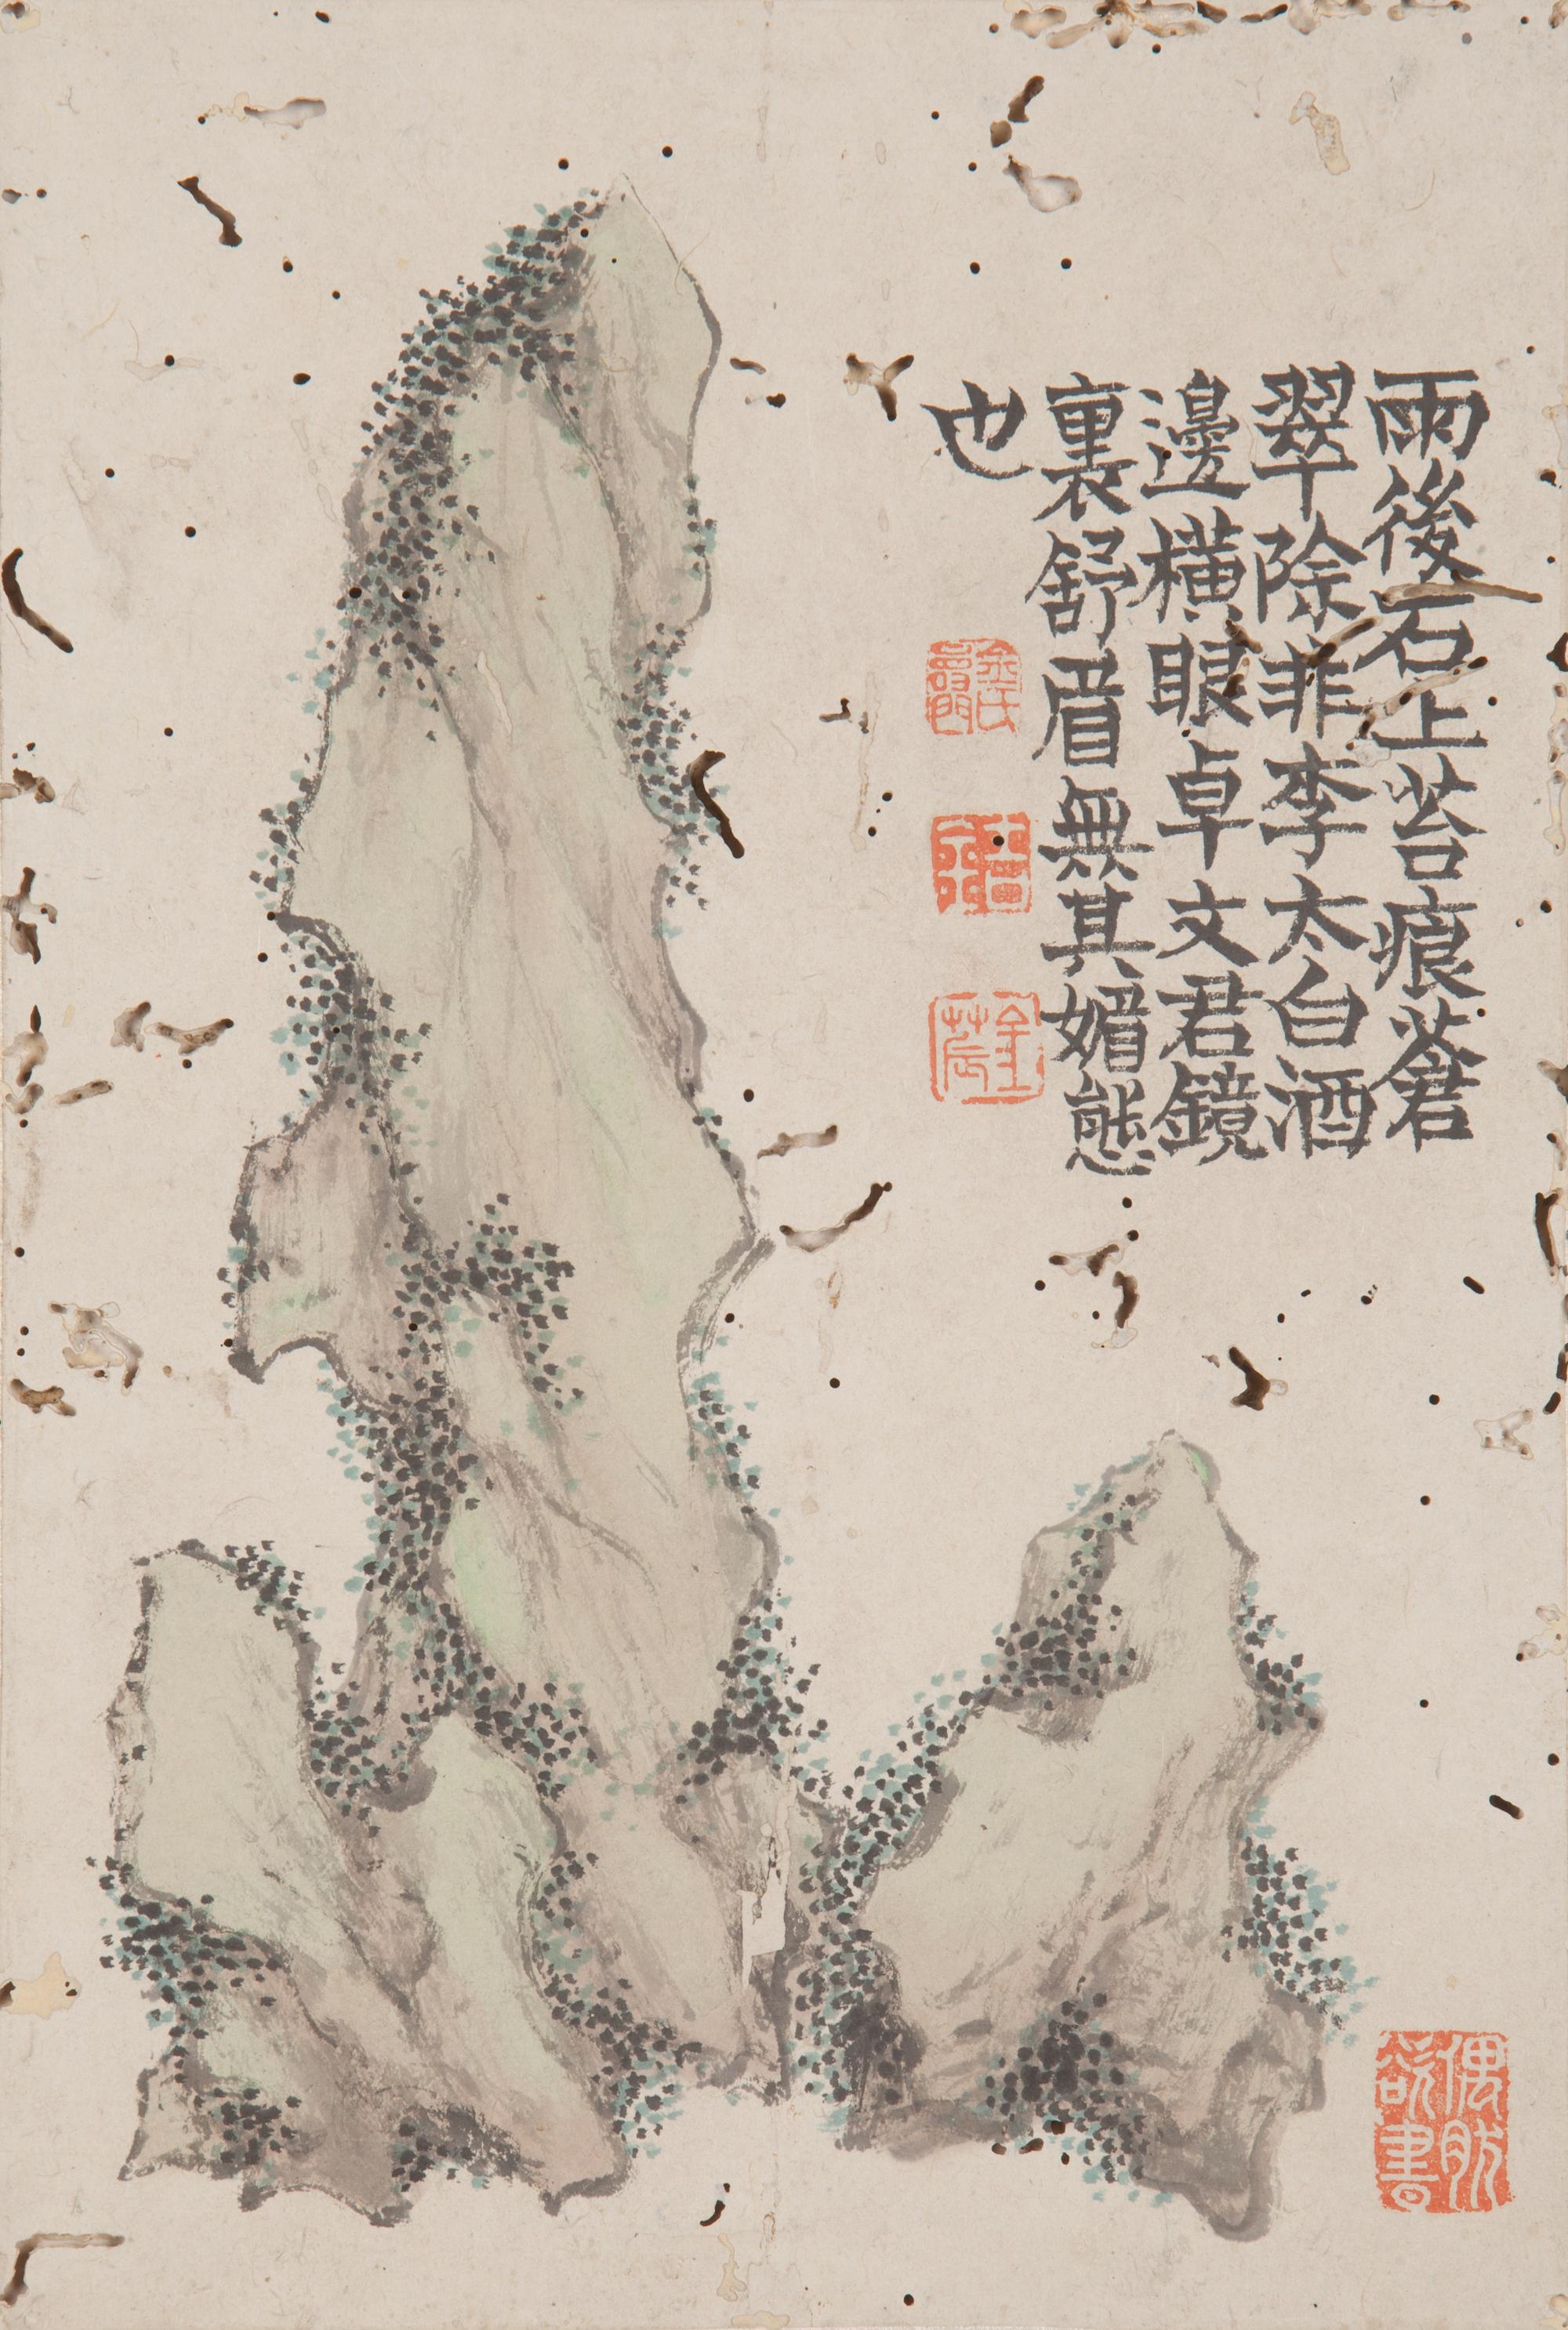 雨後石上苔痕蒼
翠除非李太白酒
邊橫眼卓文君鏡
裏舒眉無其媚態
也
金氏壽門
金農
偶然欲書